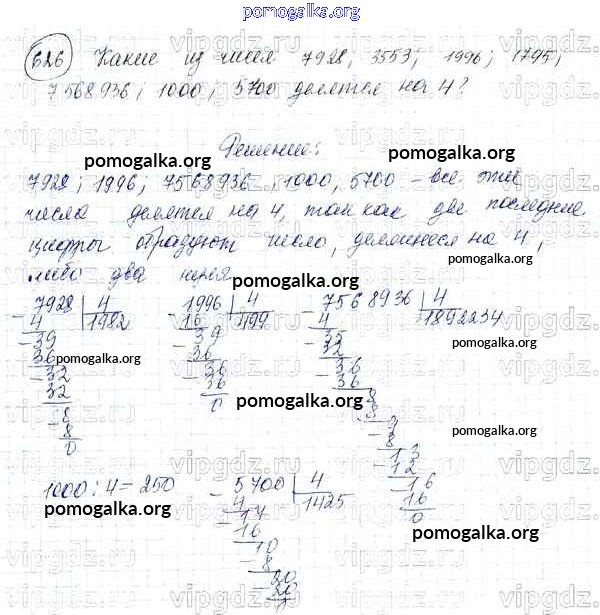 pomogalka.org
626 Какие из чисел 7928; 3553; 1996; 1795;
7568936; 1000; 5700 делятся на 4?
Решение:
pomogalka.org pomogalka.org
7928; 1996; 7568936, 1000, 5700 – все эти
числа делятся на 4, так как две последние
цифры образуют число, делящиеся на 4,
либо два нуля
pomogalka.org pomogalka.org
7928 | 4 1996 | 4 7568936 | 4
4 1982 16 499 4 1892234
39 39 35
36 36 32
pomogalka.org pomogalka.org
32 36 36
32 36 36
8 0 8
8 8
0 9
pomogalka.org pomogalka.org
8
13
12
16
16
0
1000 : 4 = 250 5700 | 4
4 1425
17
16
10
8
20
20
0
pomogalka.org pomogalka.org
vipgdz.